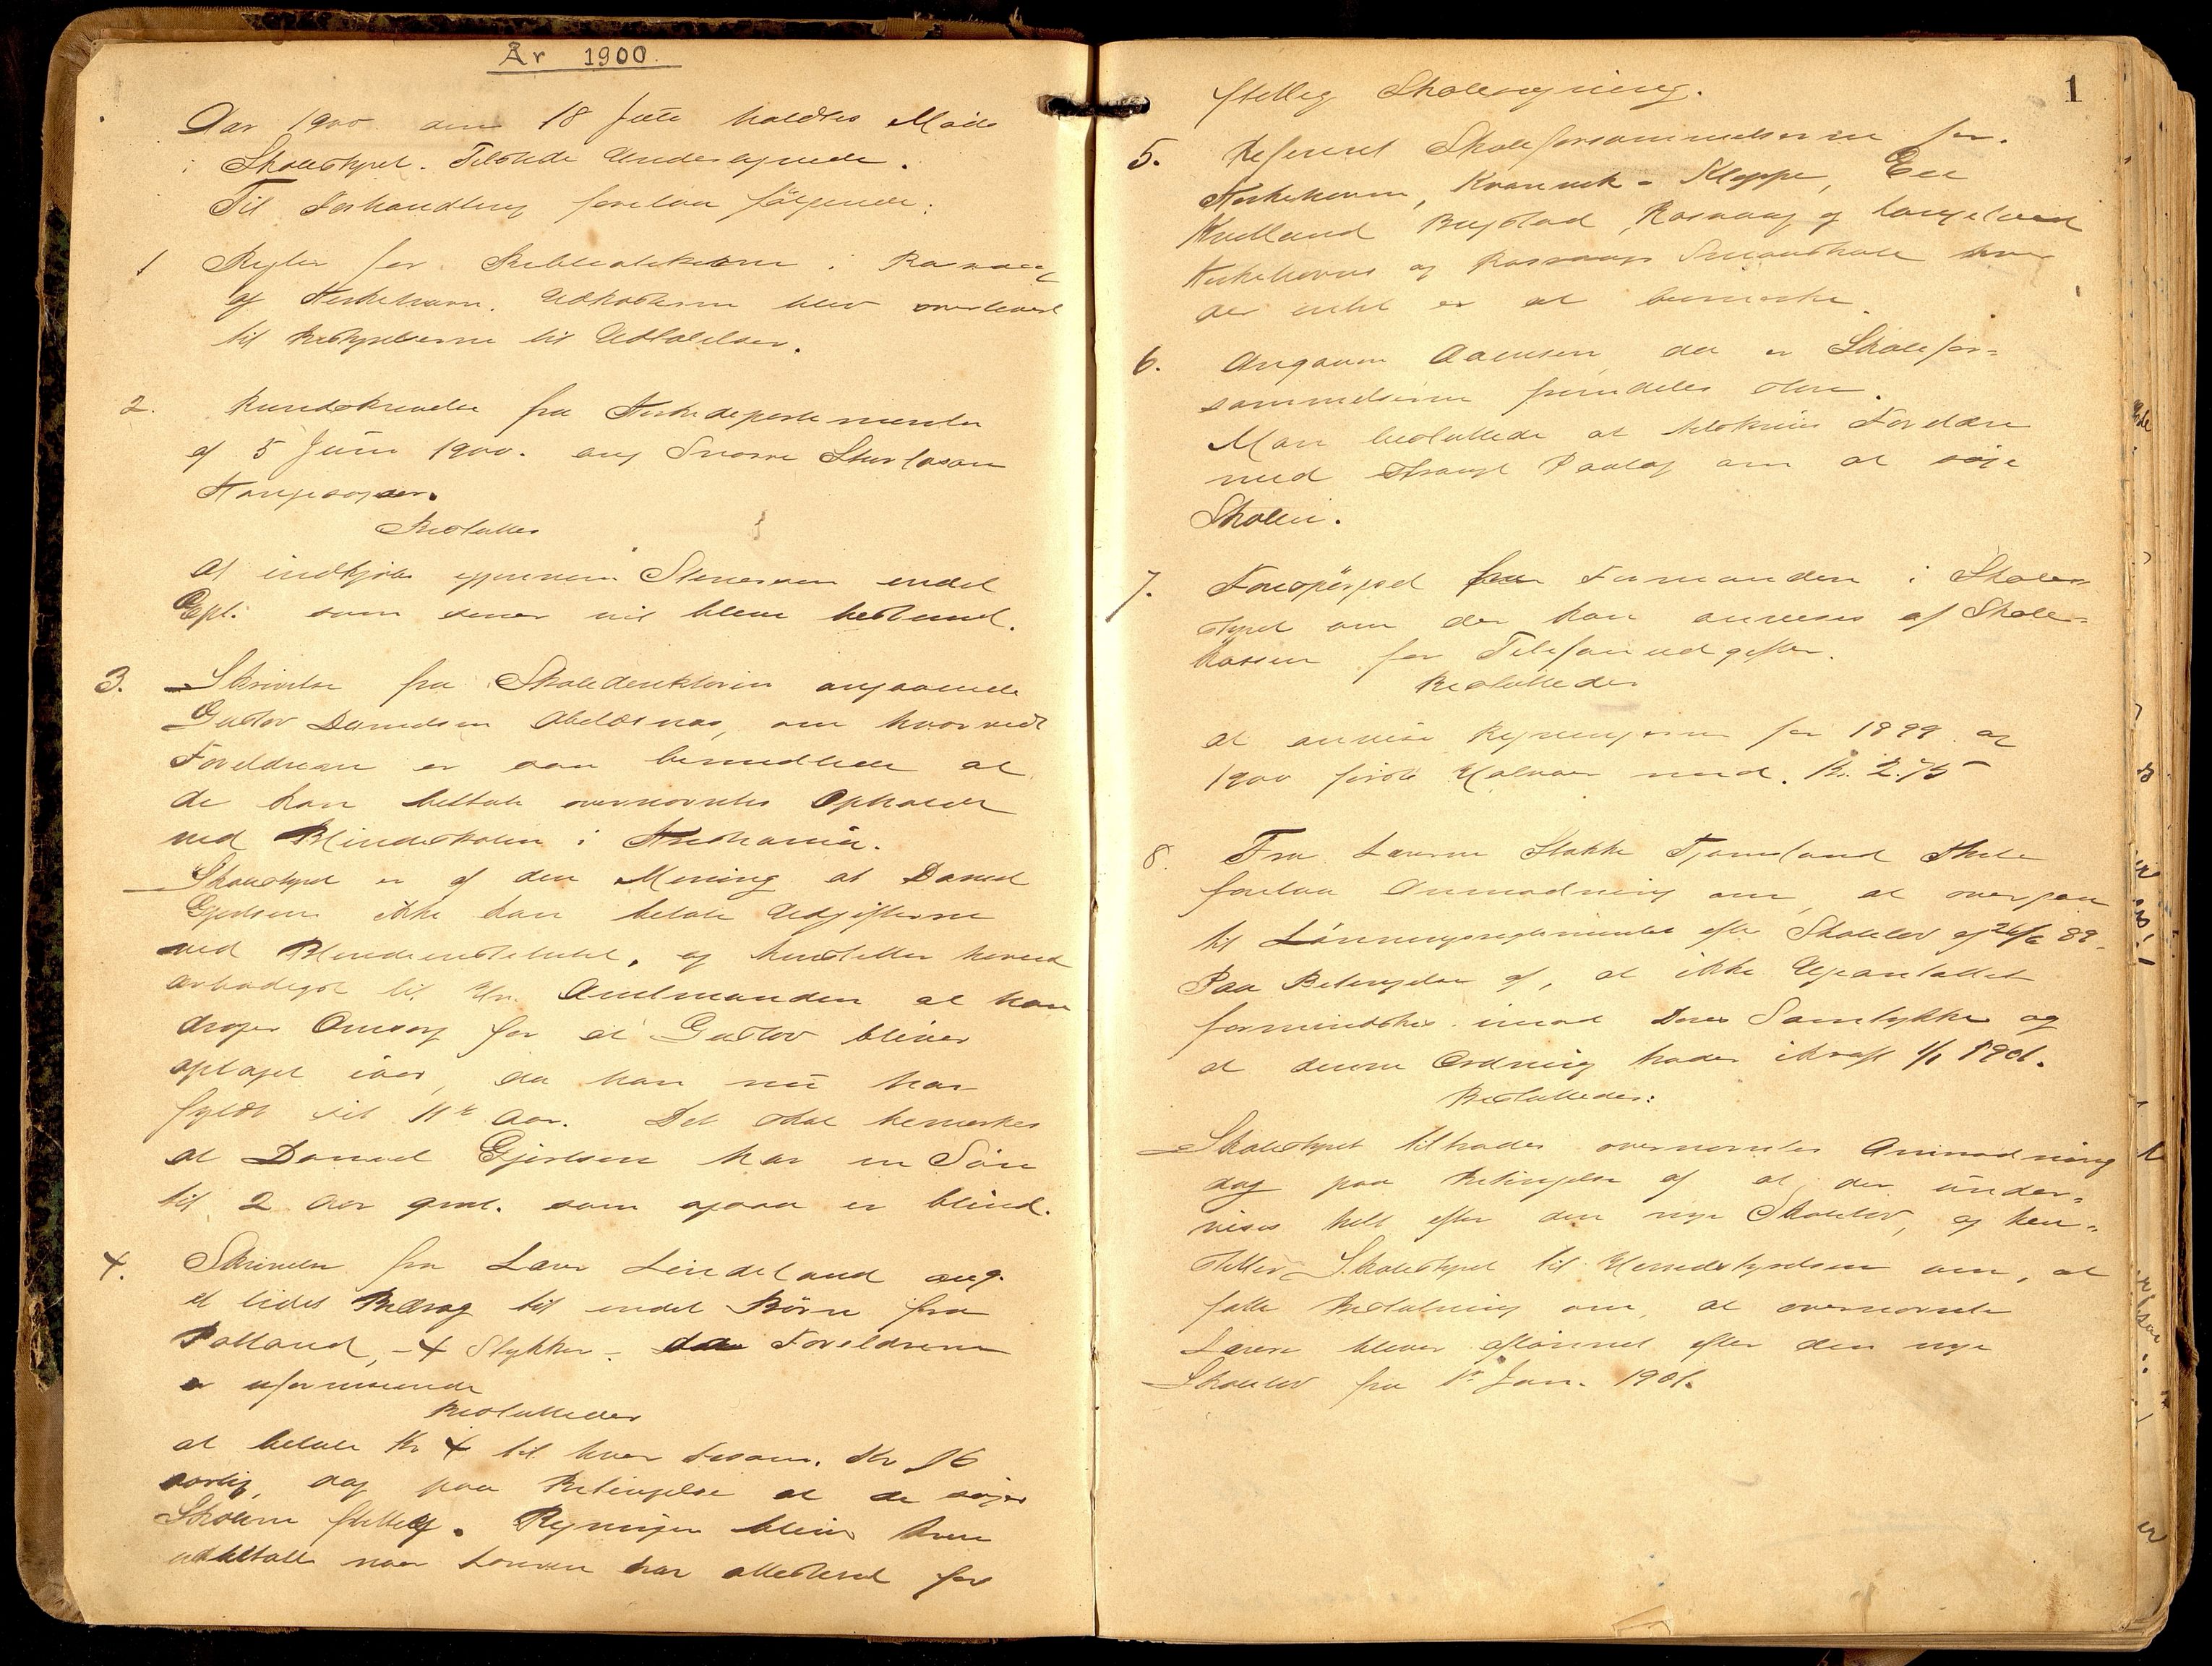 År 1900.
Aar 1900 den 18 Juli holdtes Møde
i Skolestyret. Tilstede Undertegnede.
Til Forhandling forelaa følgende:
1 Regler for Bibliothekerne i Rasvaag
og Kirkehavn. Udkasterne blev overleveret
til Bestyrelserne til Udtalelser.
2. Rundskrivelse fra Kirkedepartementet
af 5 Juni 1900. ang Snorre Sturlason
Kongesagaer.
Besluttes
at indkjøbe gjennem Stenersen endel
Expl. som senere vil blive bestemt.
3. Skrivelse fra Skoledirektøren angaaende
Gustav Danielsen Abelsnes, om hvorvidt
Forældrene er saa bemidlede at
de kan betale overnævntes Ophold
ved Blindeskolen i Kristiania.
Skolestyret er af den Mening at Daniel
Gjertsen ikke kan betale Udgifterne
ved Blindeinstitutet, og henstiller herved
ærbødigst til Hr. Amtmanden at han
drager Omsorg for at Gustav bliver
optaget iaar, da han nu har
fyldt sit 11te Aar. Det skal bemærkes
at Daniel Gjertsen har en Søn
til 2 Aar gml. som ogsaa er blind.
4. Skrivelse fra Lærer Lindeland ang.
et lidet Bidrag til endel Børn fra
Polland, - 4 Stykker - da Forældrene
er uformuende
Besluttedes
at betale Kr 4 til hver tilsam. Kr 16
aarlig, dog paa Betingelse at de søger
Skolen flittig. Regningen bliver
udbetalt naar Læreren har attesteret for
1
flittig Skolesøgning.
5. Referert Skoleforsamlingerne for
Kirkehavn, Kvanvik - Kleppe,
Hvelland Bugstad, Rasvaag og Langeland
Kirkehavns og Rasvaags Smaaskole hvor
der intet er at bemærke.
6. Angaaen Aamsen da er Skolefor=
sømmelserne fremdeles store.
Man besluttede at tilskrive Forældre
med strængt Paalæg om at søge
Skolen.
7. Forespørgsel fra Formanden i Skole=
styret om der kan anvises af Skole=
kassen for Telefonudgifter.
Besluttedes
at anvise Regningerne for 1899 og
1900 første Halvaar med. Kr. 2.75
8. Fra Lærerne Stakke Tjømsland
forelaa Anmodning om, at overgaa
til Lønningsreglementet efter Skolelov af 26/6 89-
Paa Betingelse af, at ikke Ugeantallet
formindskes imod Deres Samtykke og
at denne Ordning træder ikraft 1/1 1901.
Besluttedes:
Skolestyret tiltræder overnævntes Anmodning
dog paa Betingelse af at der under=
vises helt efter den nye Skolelov, og hen=
stiller Skolestyret til Herredstyrelsen om, at
fatte Beslutning om, at overnævnte
Lærere bliver aflønnet efter den nye
Skolelov fra 1ste Jan. 1901.